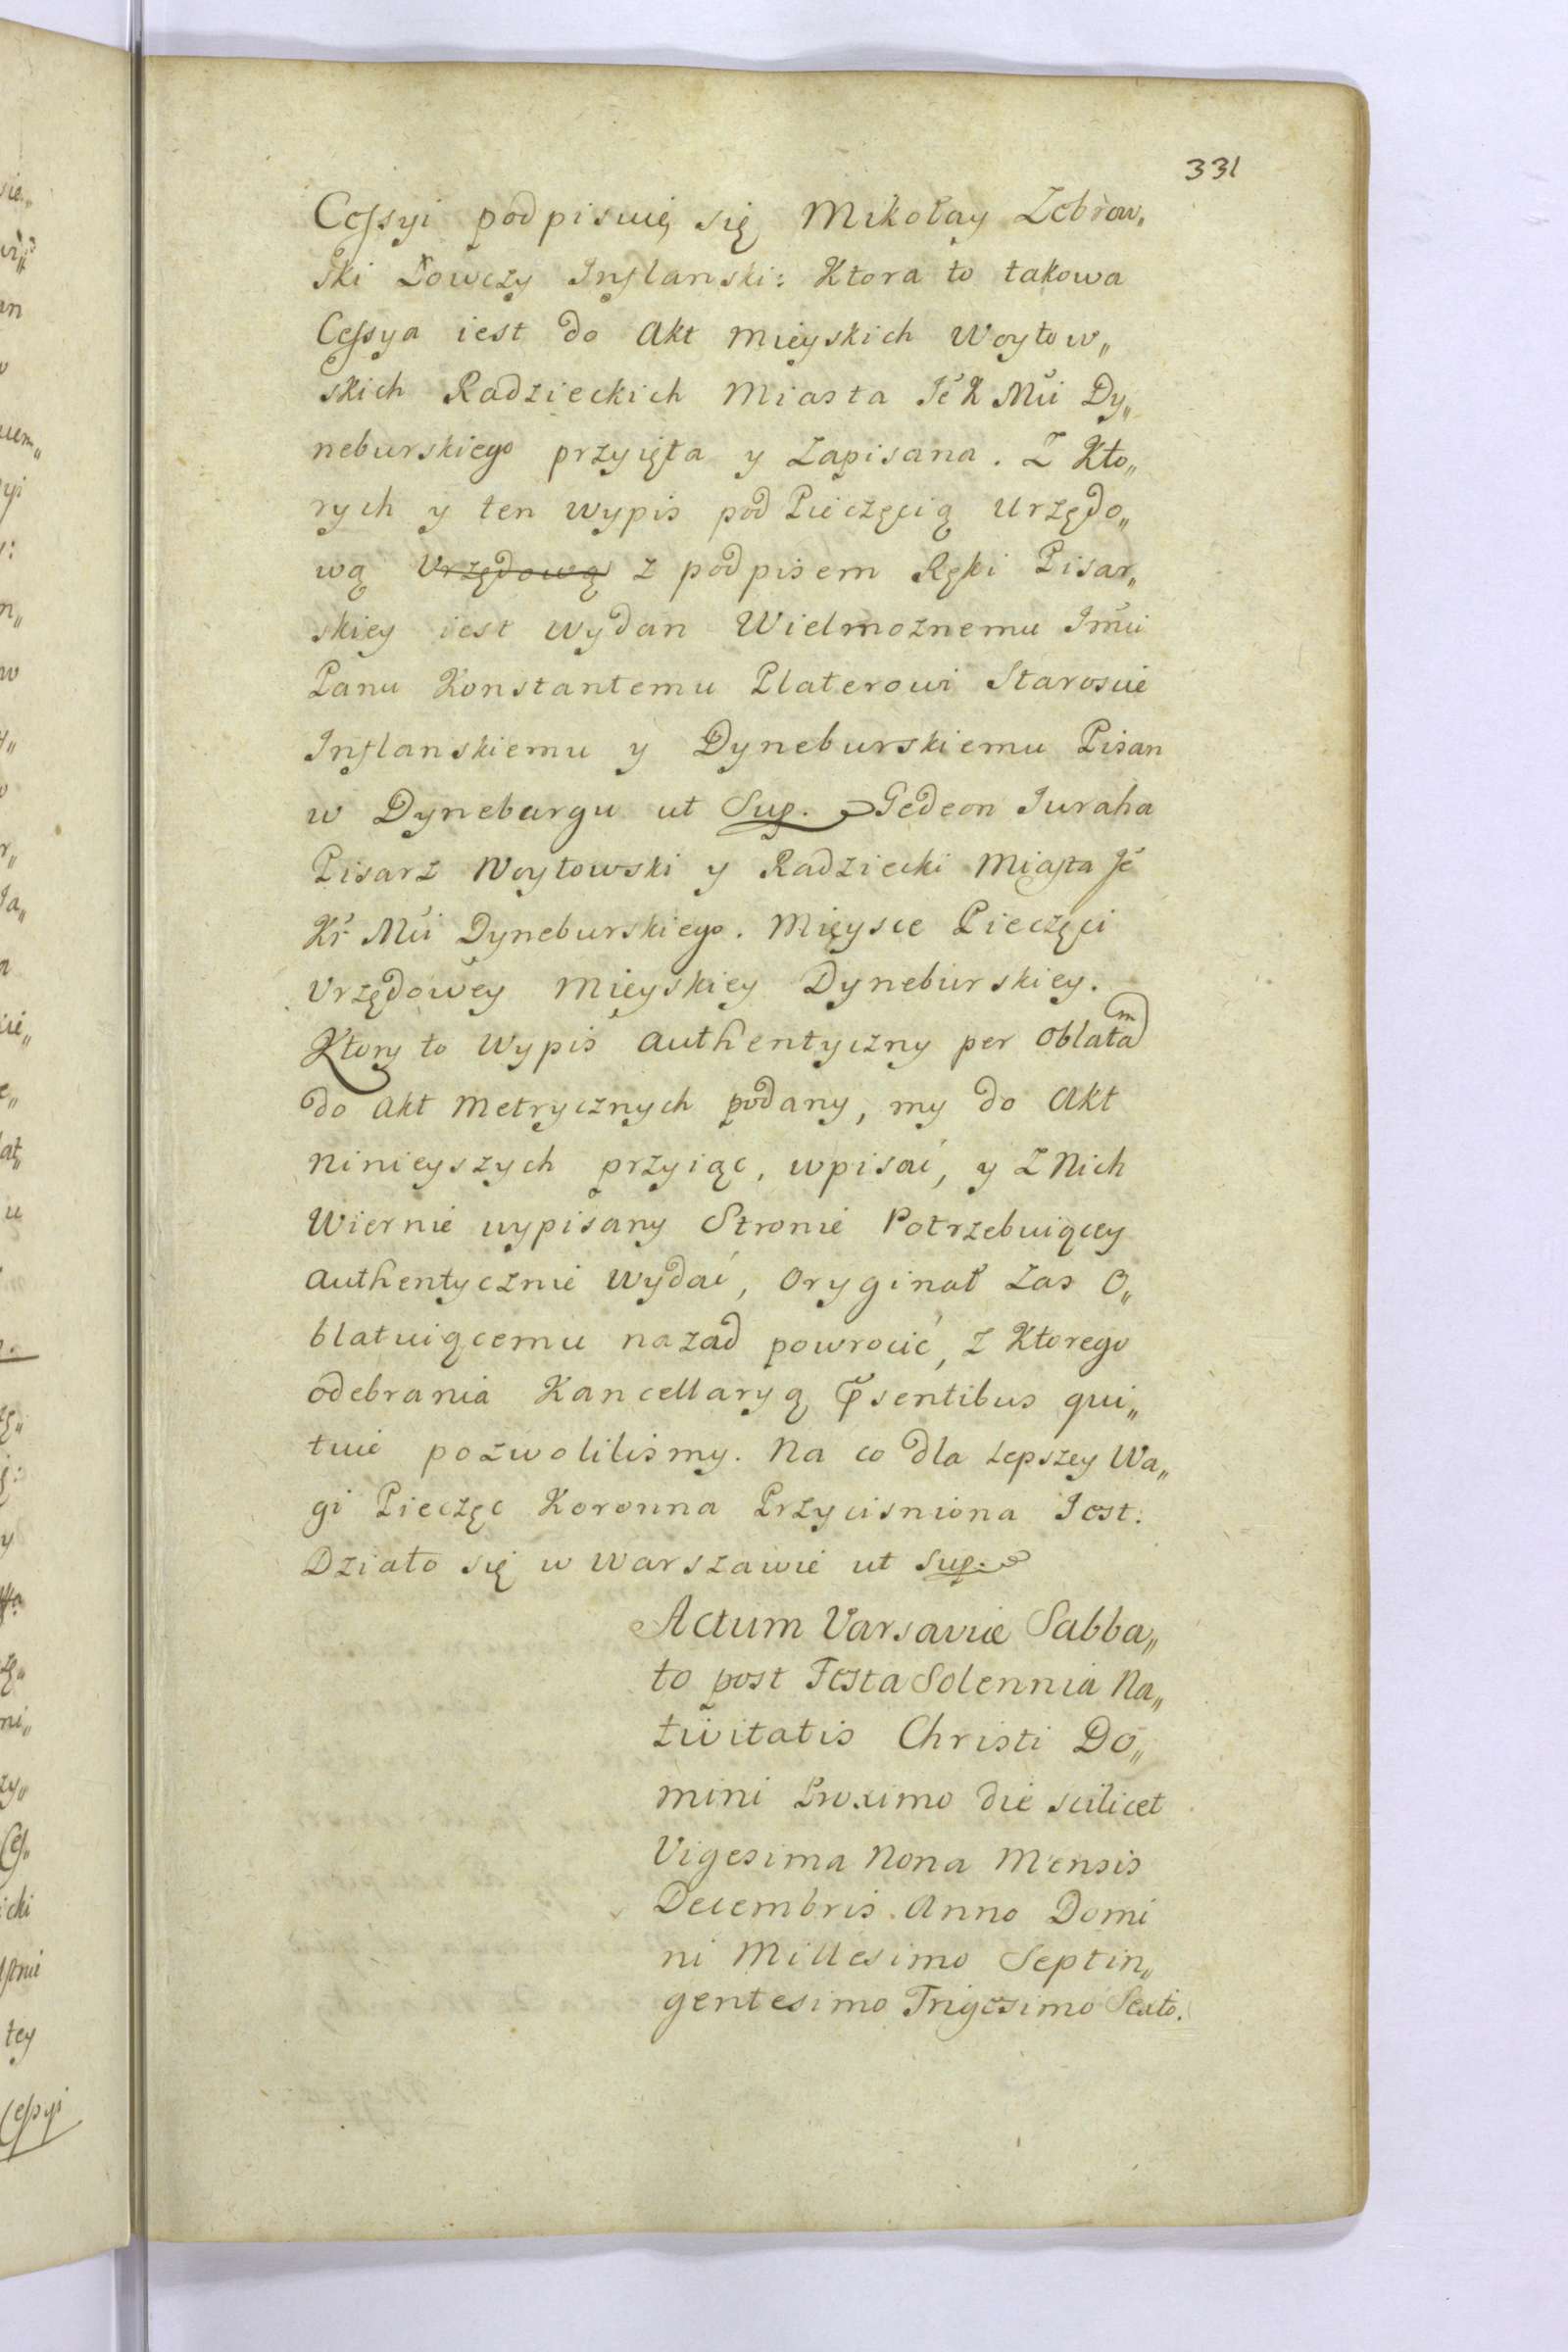 331
Cessyi podpisuię się Mikołay Zebrow„
ski Łowczy Inflanski: Ktora to takowa
Cessya iest do Akt Mieyskich Woytow„
skich Radzieckich Miasta Jĕ K Mŭi Dy„
neburskiego przyięta y Zapisana. Z Kto„
rych y ten Wypis pod Pieczęcią Urzędo„
wą Urzędową z podpisem Ręki Pisar„
skiey iest wydan Wielmoznemu Jmŭi
Panu Konstantemu Platerowi Staroscie
Inflanskiemu y Dyneburskiemu Pisan
w Dyneburgu ut Sup. Gedeon Juraha
Pisarz Woytowski y Radziecki Miasta Jĕ
Kr̆ Mŭi Dyneburskiego. Mieysce Pieczęci
Urzędowey Mieyskiey Dyneburskiey.
Ktory to Wypis Authentyczny per Oblatam
do Akt Metrycznych podany, my do Akt
Ninieyszych przyiąc, wpisać, y z Nich
Wiernie wypisany Stronie Potrzebuiącey
Authentycznie Wydać, Oryginał zas O„
blatuiącemu nazad powrocić, z Ktorego
odebrania Kancellaryą p̃sentibus qui„
tuie pozwolilismy. Na co dla Lepszey Wa„
gi Pieczęc Koronna Przycisniona Jest.
Działo się w Warszawie ut Sup.
Actum Varsaviæ Sabba„
to post Festa Solennia Na„
tivitatis Christi Do„
mini Proximo die scilicet
Vigesima Nona Mensis
Decembris Anno Domi
ni Millesimo Septin„
gentesimo Trigesimo Sexto.